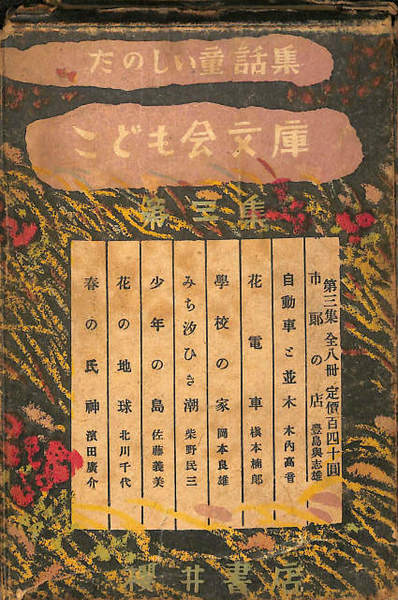 たのしい童話集
こども会文庫
第三集
第三集 全八冊 定價百四十圓
市郎の店 豊島與志雄
自動車と並木 木内高音
花電車 槇本楠郎
學校の家 岡本良雄
みち汐ひき潮 柴野民三
少年の島 佐藤義美
花の地球 北川千代
春の氏神 濱田廣介
櫻井書店